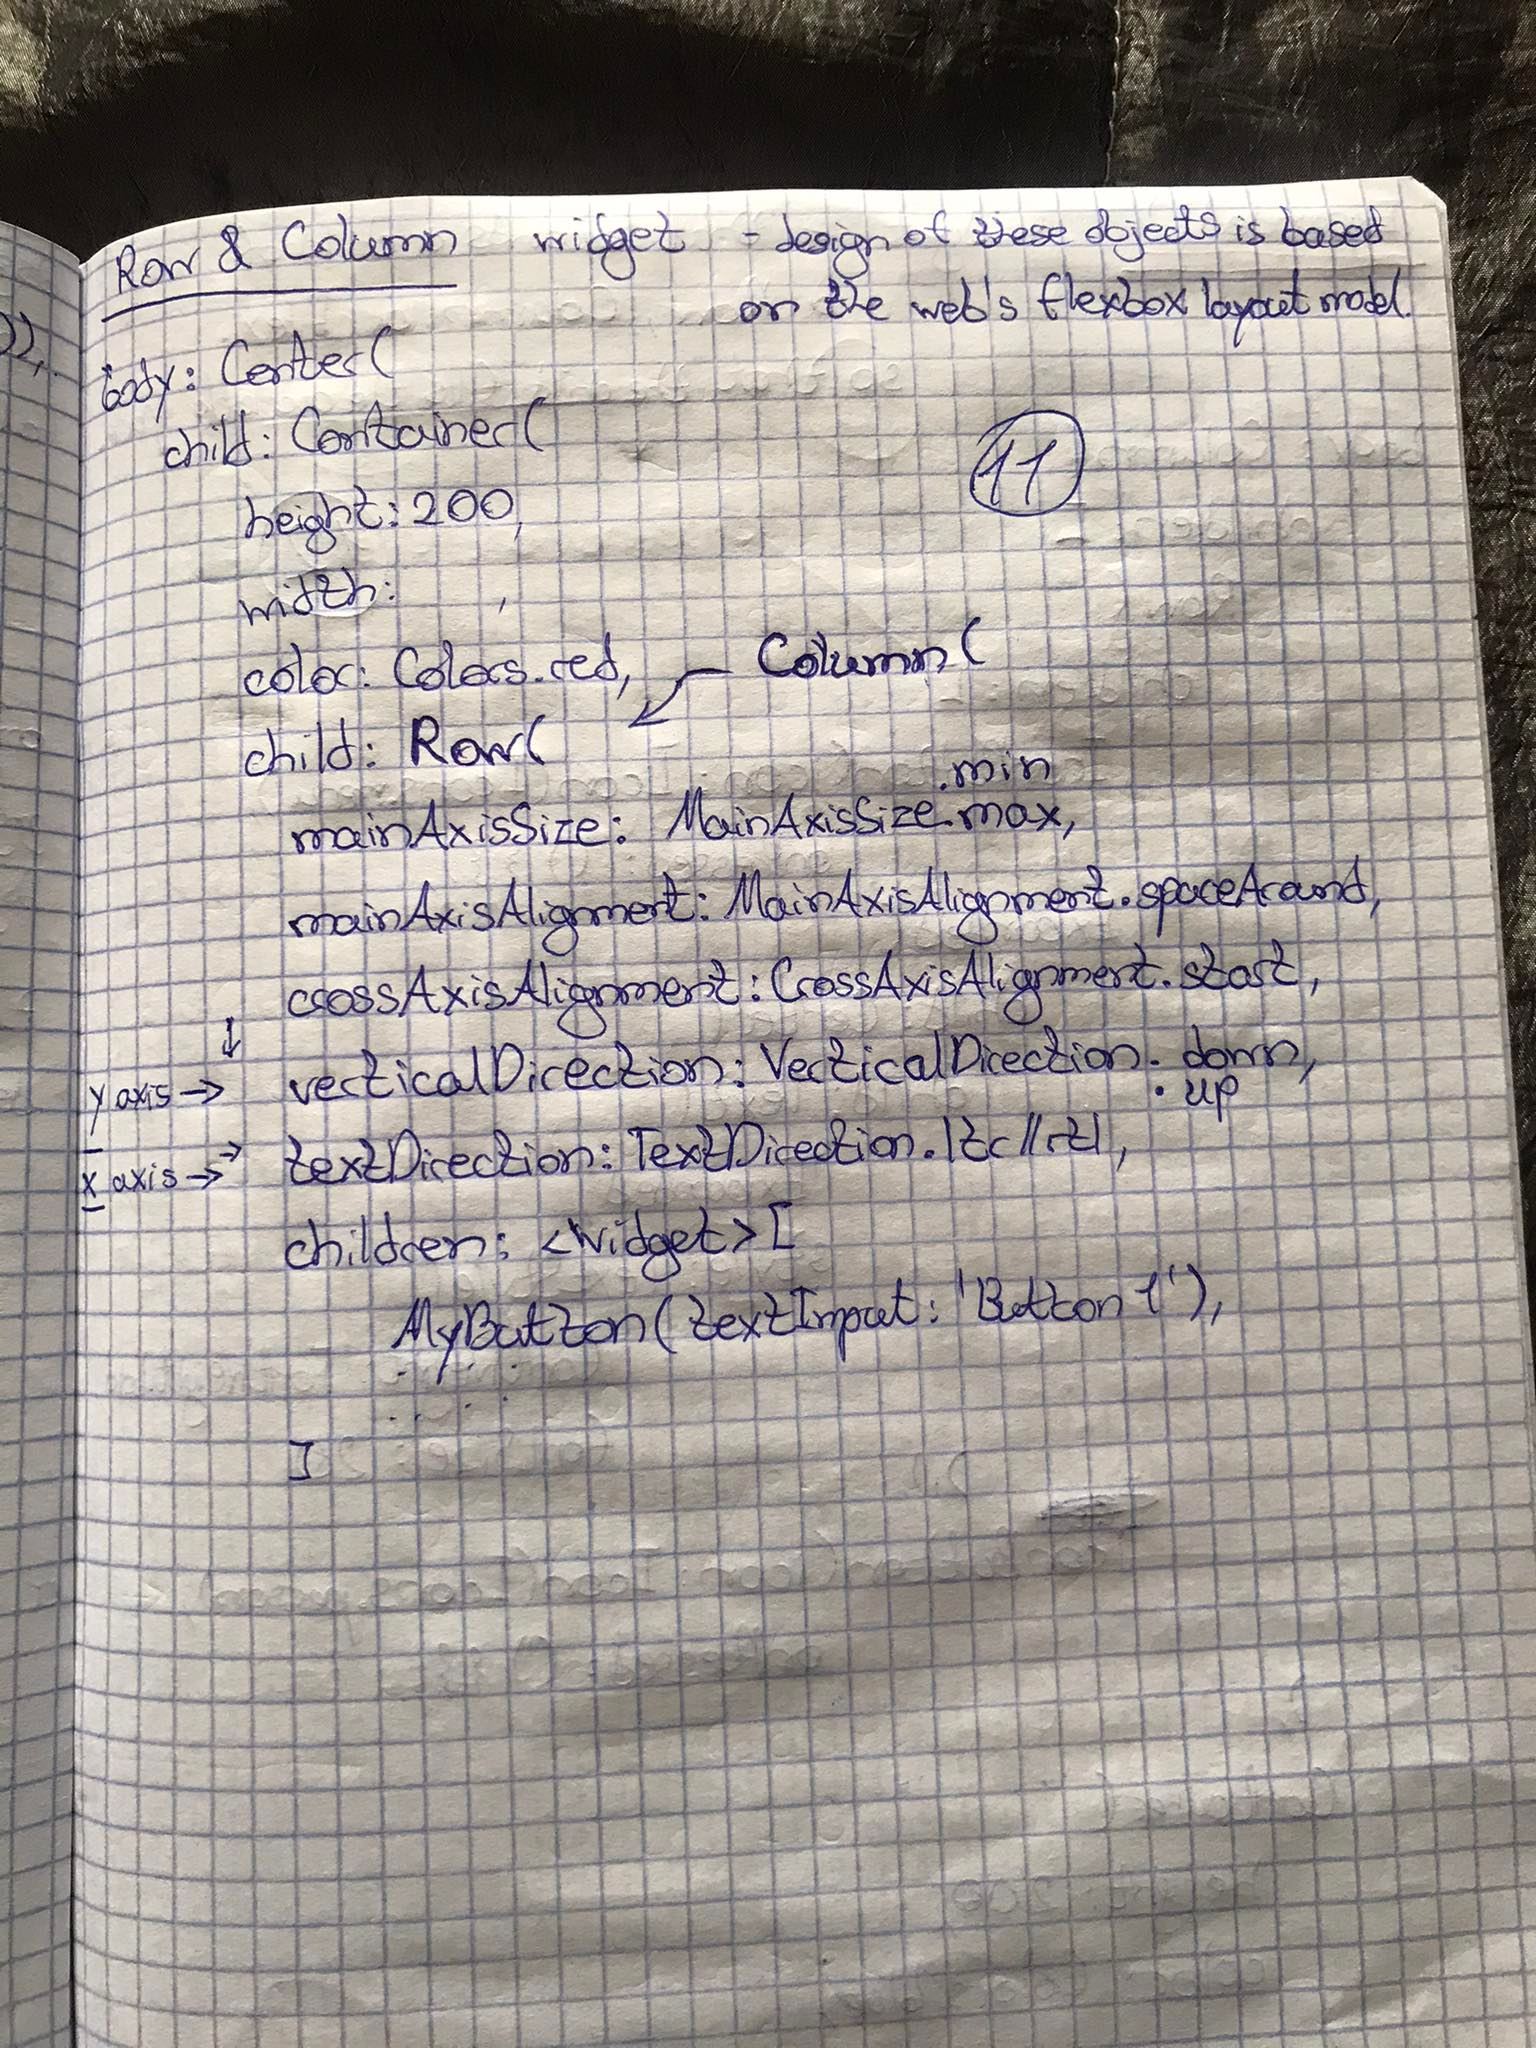 )),
Row & Column widget - design of these objects is based
on the web's flexbox layout model.
body: Center(
child: Container(
11
height: 200,
width: ,
color: Colors.red,
Column(
child: Row(
.min
mainAxisSize: MainAxisSize.max,
mainAxisAlignment: MainAxisAlignment.spaceAround,
crossAxisAlignment: CrossAxisAlignment.start,
↓
y axis → verticalDirection: VerticalDirection. down,
. up
x axis → → textDirection: TextDirection.ltr//rtl,
children: <Widget>[
MyButton(textInput: 'Button 1'),
. . . .
. . . .
]